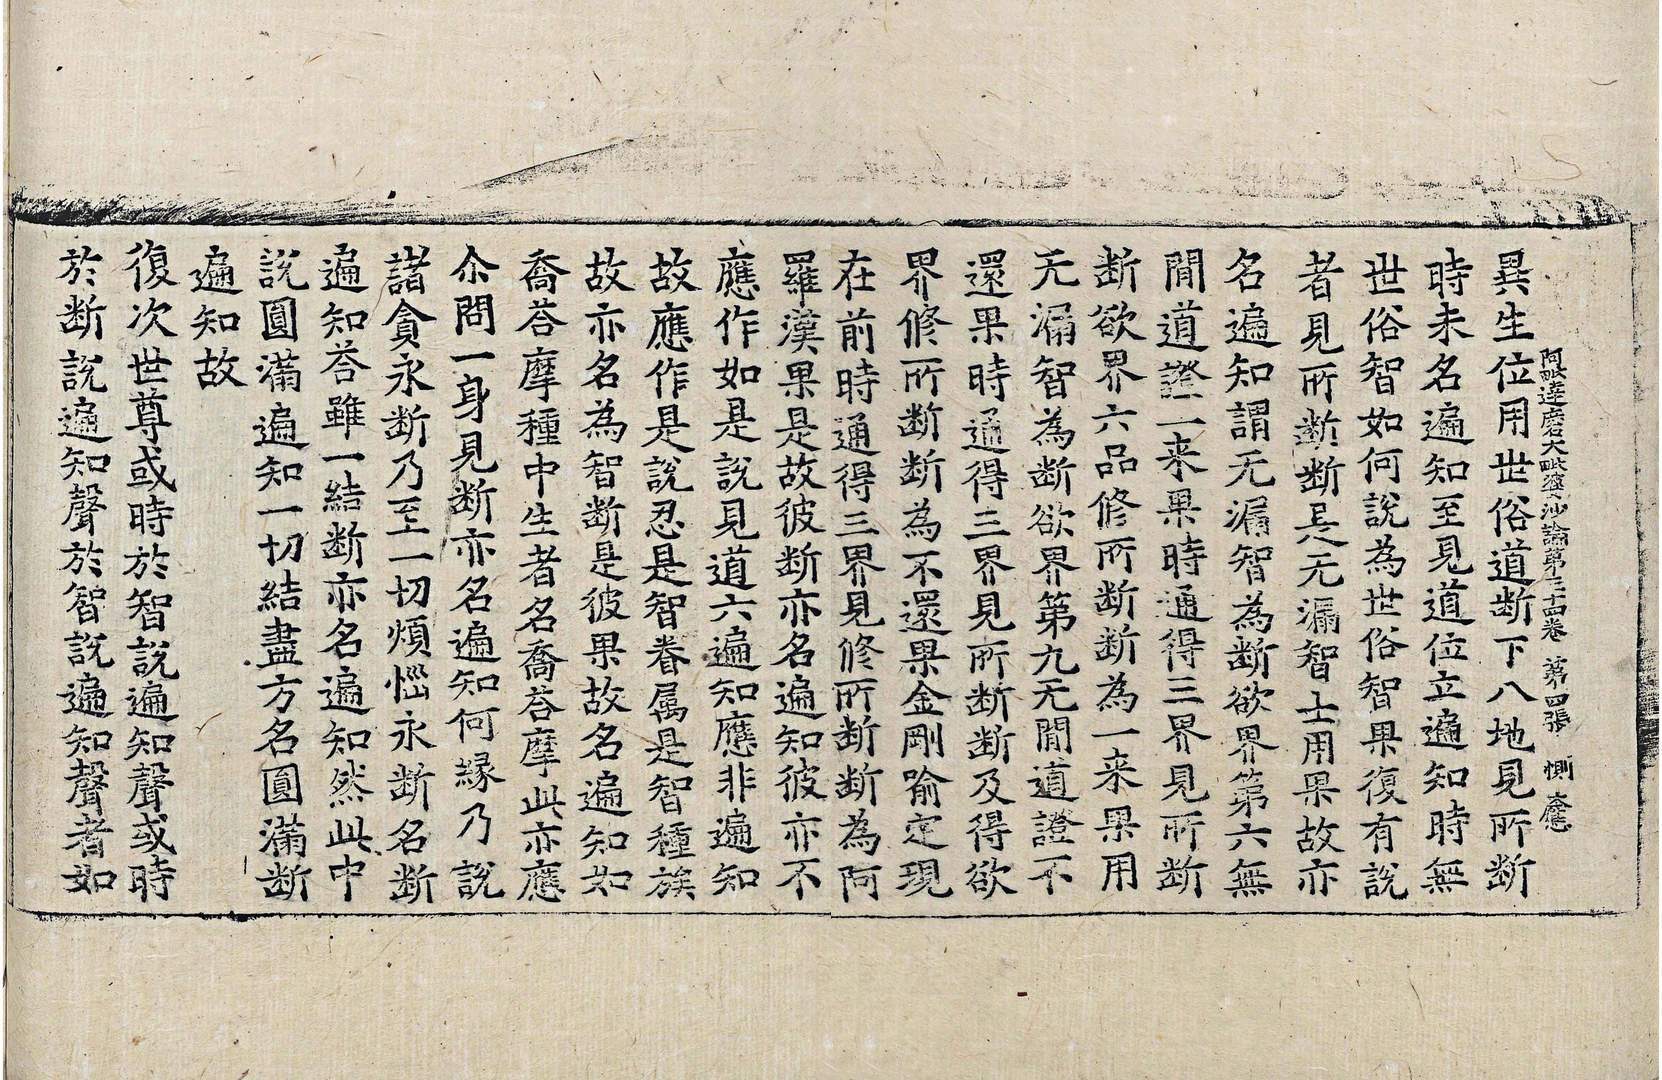 阿毗達磨大毗婆沙論第三十四卷 第四張 惻
異生位用世俗道断下八地見所断
時未名遍知至見道位立遍知時無
世俗智如何說為世俗智果復有說
者見所断断是无漏智士用果故亦
名遍知謂无漏智為断欲界第六無
閒道證一来果時通得三界見所断
断欲界六品修所断断為一来果用
无漏智為断欲界第九无閒道證不
還果時通得三界見所断断及得欲
界修所断断為不還果金剛喻定現
在前時通得三界見修所断断為阿
羅漢果是故彼断亦名遍知彼亦不
應作如是說見道六遍知應非遍知
故應作是說忍是智眷属是智種族
故亦名為智断是彼果故名遍知如
喬荅摩種中生者名喬荅摩此亦應
尒問一身見断亦名遍知何縁乃說
諸貪永断乃至一切煩惱永断名断
遍知荅雖一結断亦名遍知然此中
說圓滿遍知一切結盡方名圓滿断
遍知故
復次世尊或時於智說遍知聲或時
於断說遍知聲於智說遍知聲者如